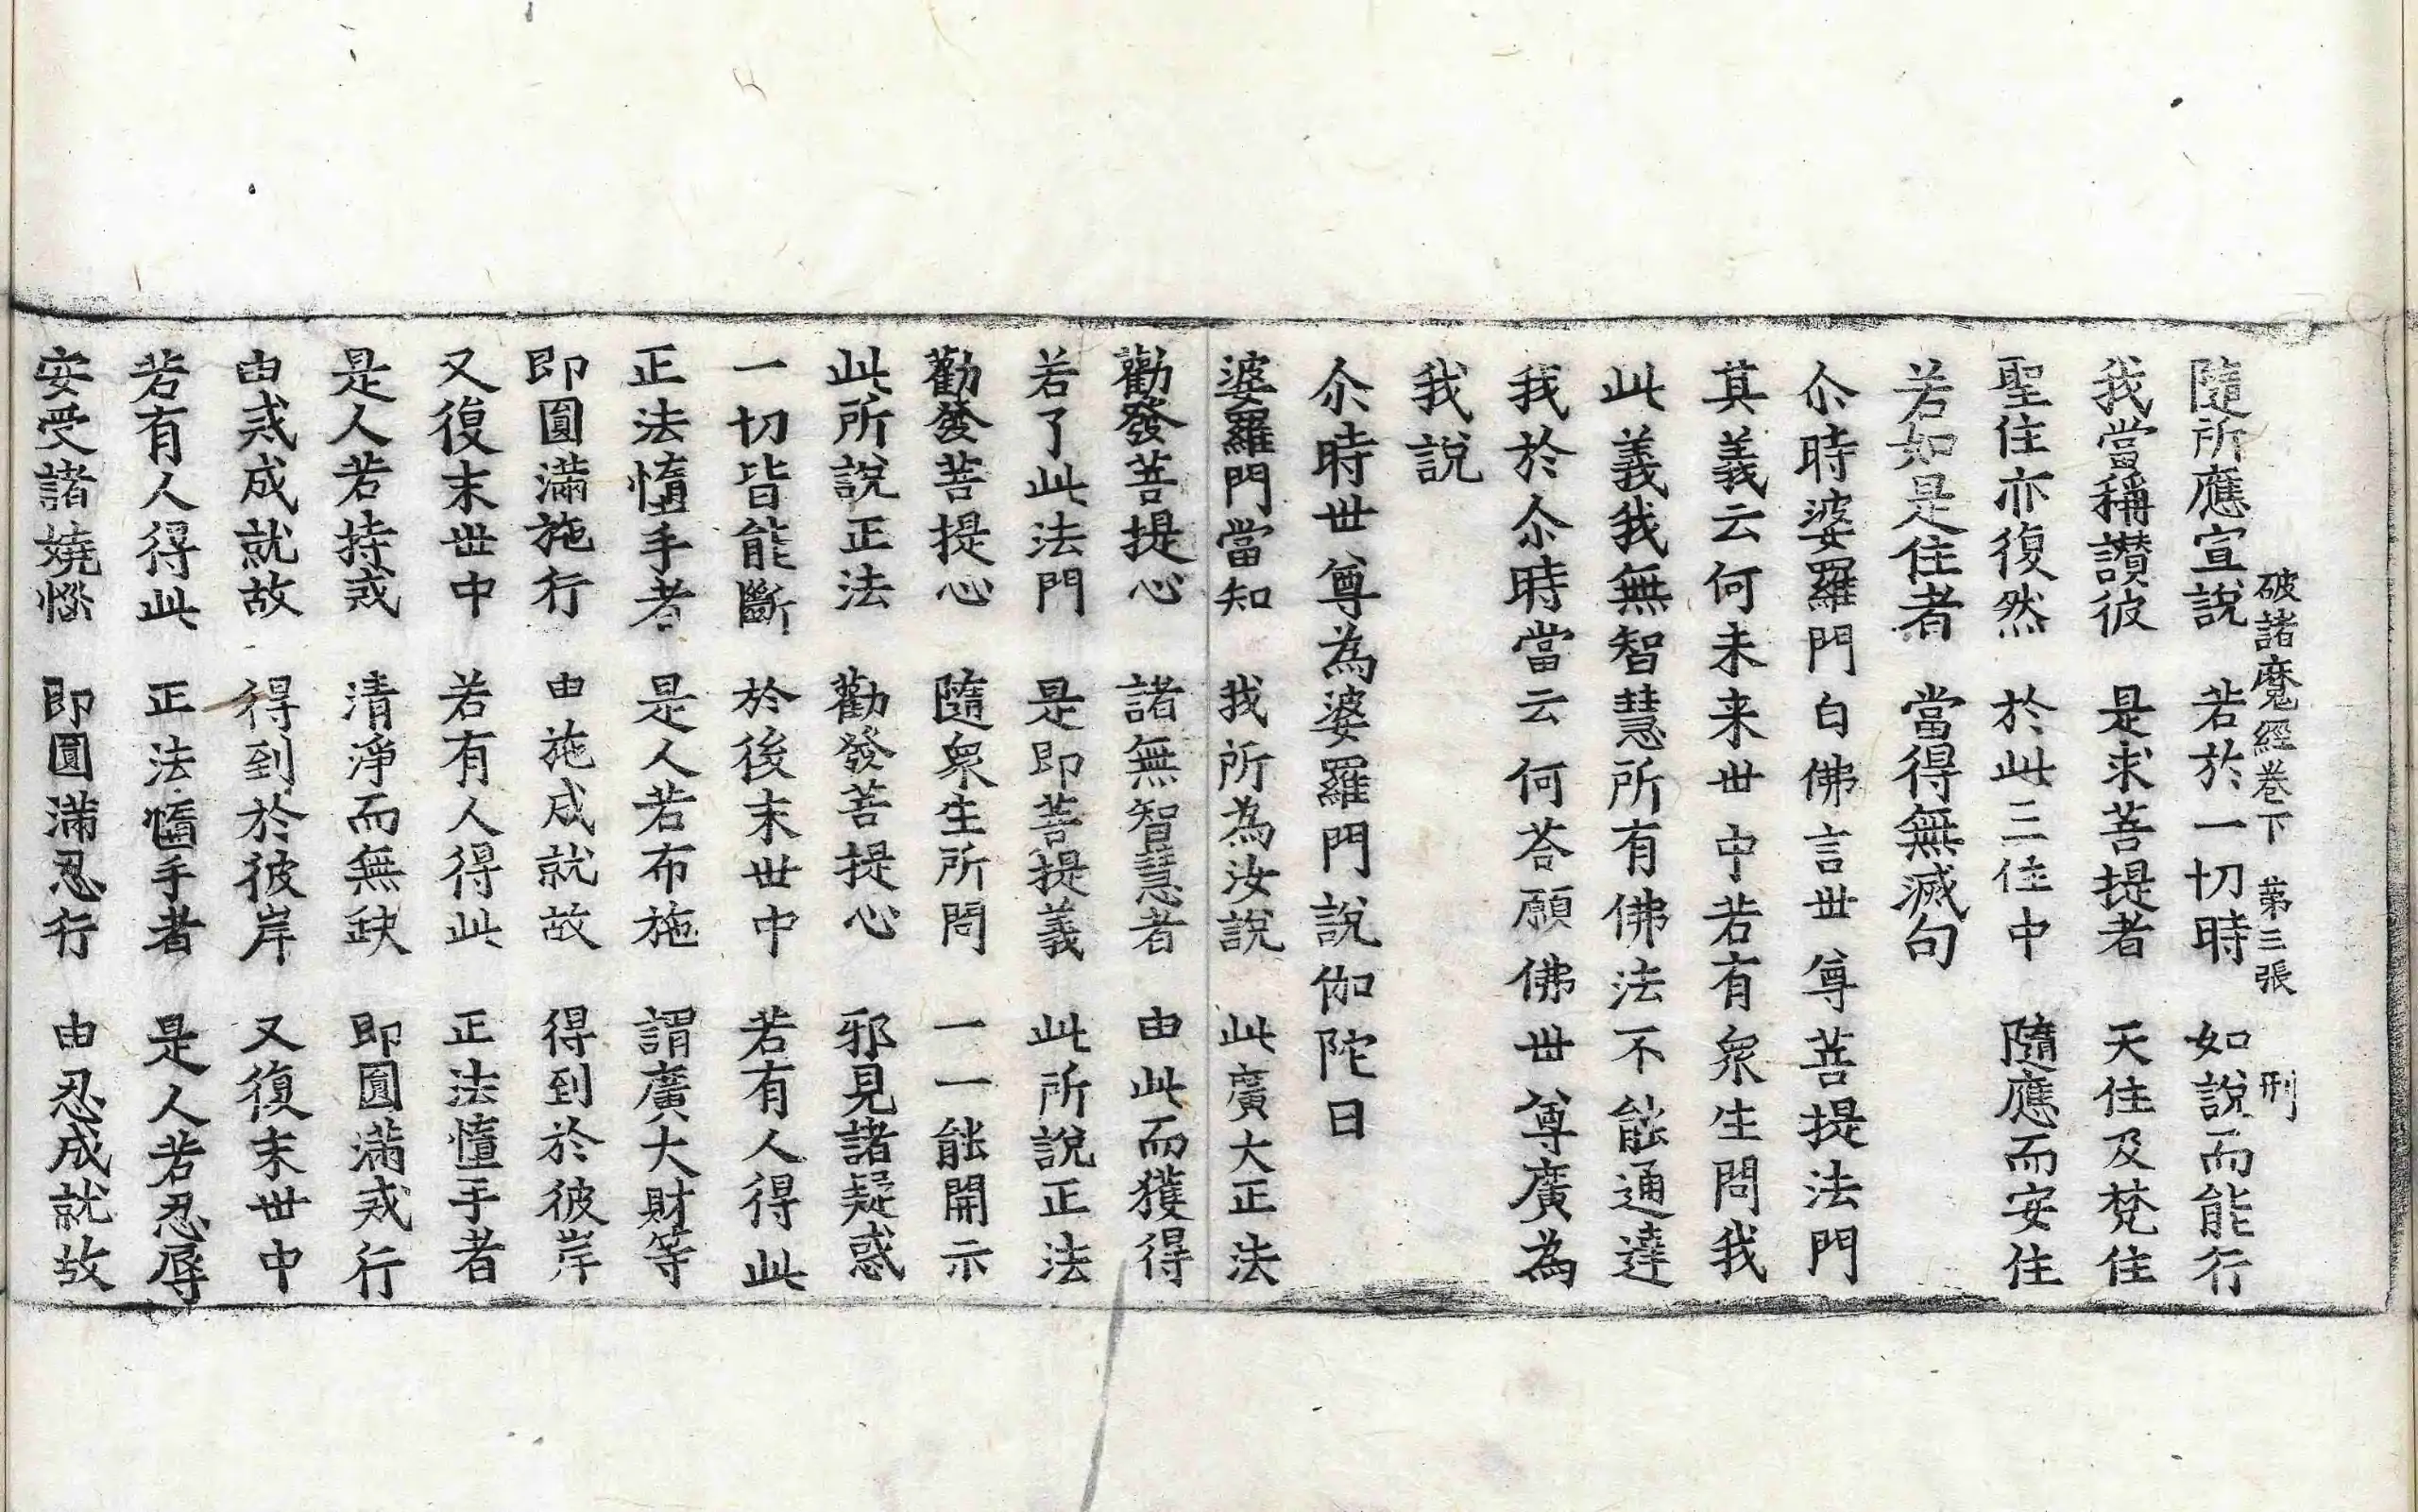 破諸魔經卷下 第三張 刑
隨所應宣說 若於一切時 如說而能行
我當稱讃彼 是求菩提者 天住及梵住
聖住亦復然 於此三住中 隨應而安住
若如是住者 當得無滅句
尒時婆羅門白佛言世尊菩提法門
其義云何未来世中若有衆生問我
此義我無智慧所有佛法不能通達
我於尒時當云何荅願佛世尊廣為
我說
尒時世尊為婆羅門說伽陀曰
婆羅門當知 我所為汝說 此廣大正法
勸發菩提心 諸無智慧者 由此而獲得
若了此法門 是即菩提義 此所說正法
勸發菩提心 隨衆生所問 一一能開示
此所說正法 勸發菩提心 邪見諸疑惑
一切皆能斷 於後末世中 若有人得此
正法憻手者 是人若布施 謂廣大財等
即圓滿施行 由施成就故 得到於彼岸
又復末世中 若有人得此 正法憻手者
是人若持戒 清淨而無缺 即圓滿戒行
由戒成就故 得到於彼岸 又復末世中
若有人得此 正法憻手者 是人若忍辱
安受諸嬈惱 即圓滿忍行 由忍成就故